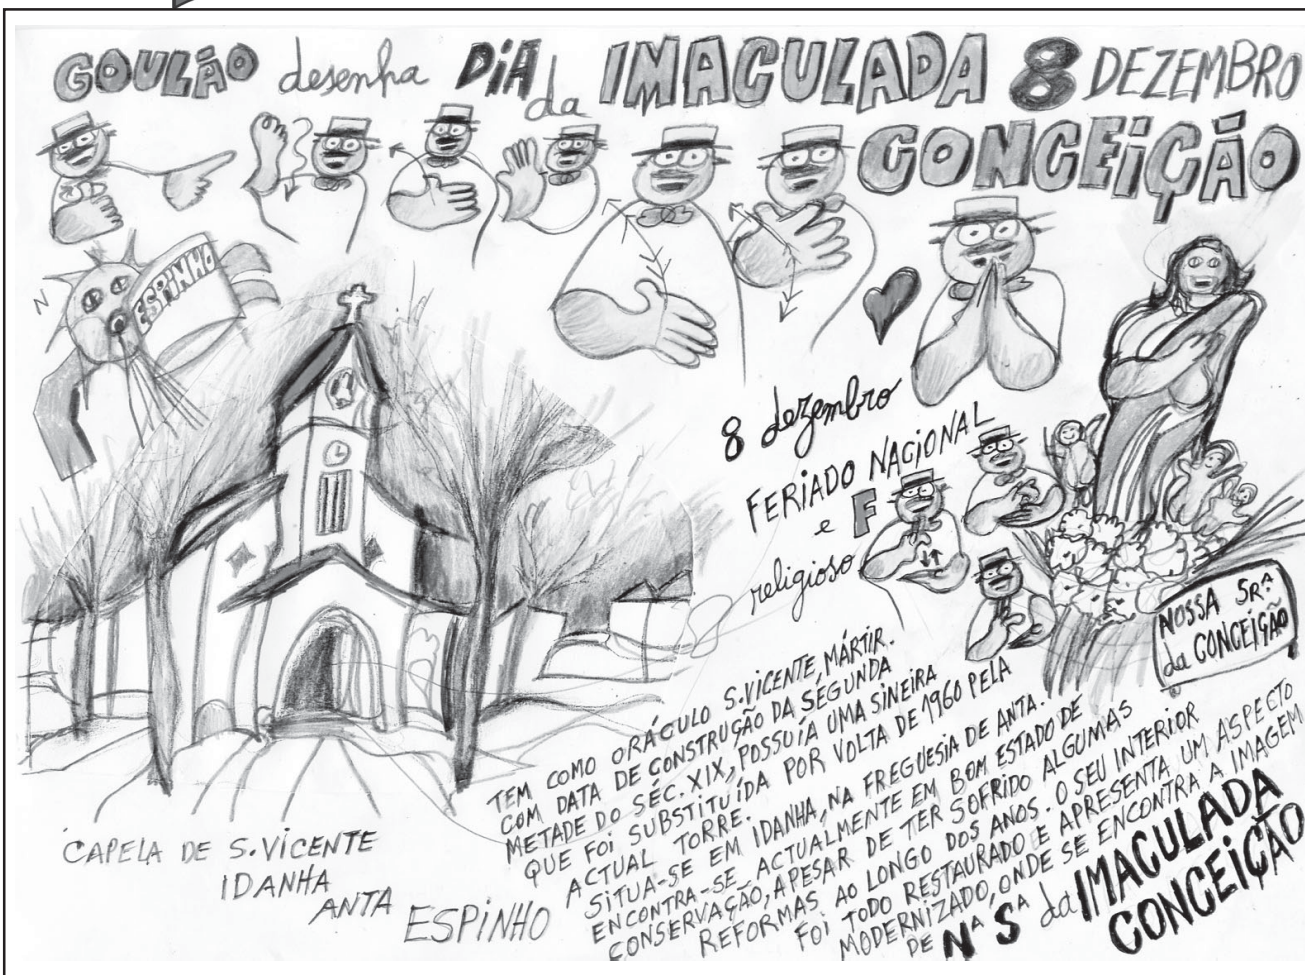 GOULÃO desenha DIA da IMACULADA 8 DEZEMBRO
CONCEIÇÃO
ESPINHO
N
8 dezembro
FERIADO NACIONAL
e F
religioso
NOSSA SRª
da CONCEIÇÃO
TEM COMO ORÁCULO S.VICENTE, MÁRTIR.
COM DATA DE CONSTRUÇÃO DA SEGUNDA
METADE DO SÉC. XIX, POSSUÍA UMA SINEIRA
QUE FOI SUBSTITUÍDA POR VOLTA DE 1960 PELA
ACTUAL TORRE.
SITUA-SE EM IDANHA, NA FREGUESIA DE ANTA.
ENCONTRA-SE, ACTUALMENTE EM BOM ESTADO DE
CONSERVAÇÃO, APESAR DE TER SOFRIDO ALGUMAS
REFORMAS AO LONGO DOS ANOS. O SEU INTERIOR
FOI TODO RESTAURADO E APRESENTA UM ASPECTO
MODERNIZADO, ONDE SE ENCONTRA A IMAGEM
DE Nª Sª da IMACULADA
CONCEIÇÃO
CAPELA DE S.VICENTE
IDANHA
ANTA
ESPINHO